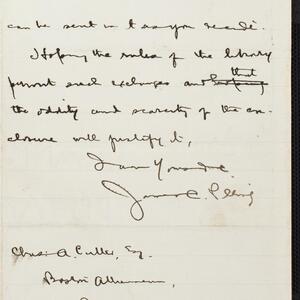 can be sent in t as you decide.
Hoping the rules of the library
permit such exchanges and that
the oddity and scarcity of the en-
closure will justify it,
I am Yours &c.
James C. Pilling
Chas. A. Cutter, Esq.
Boston Athenaeum,